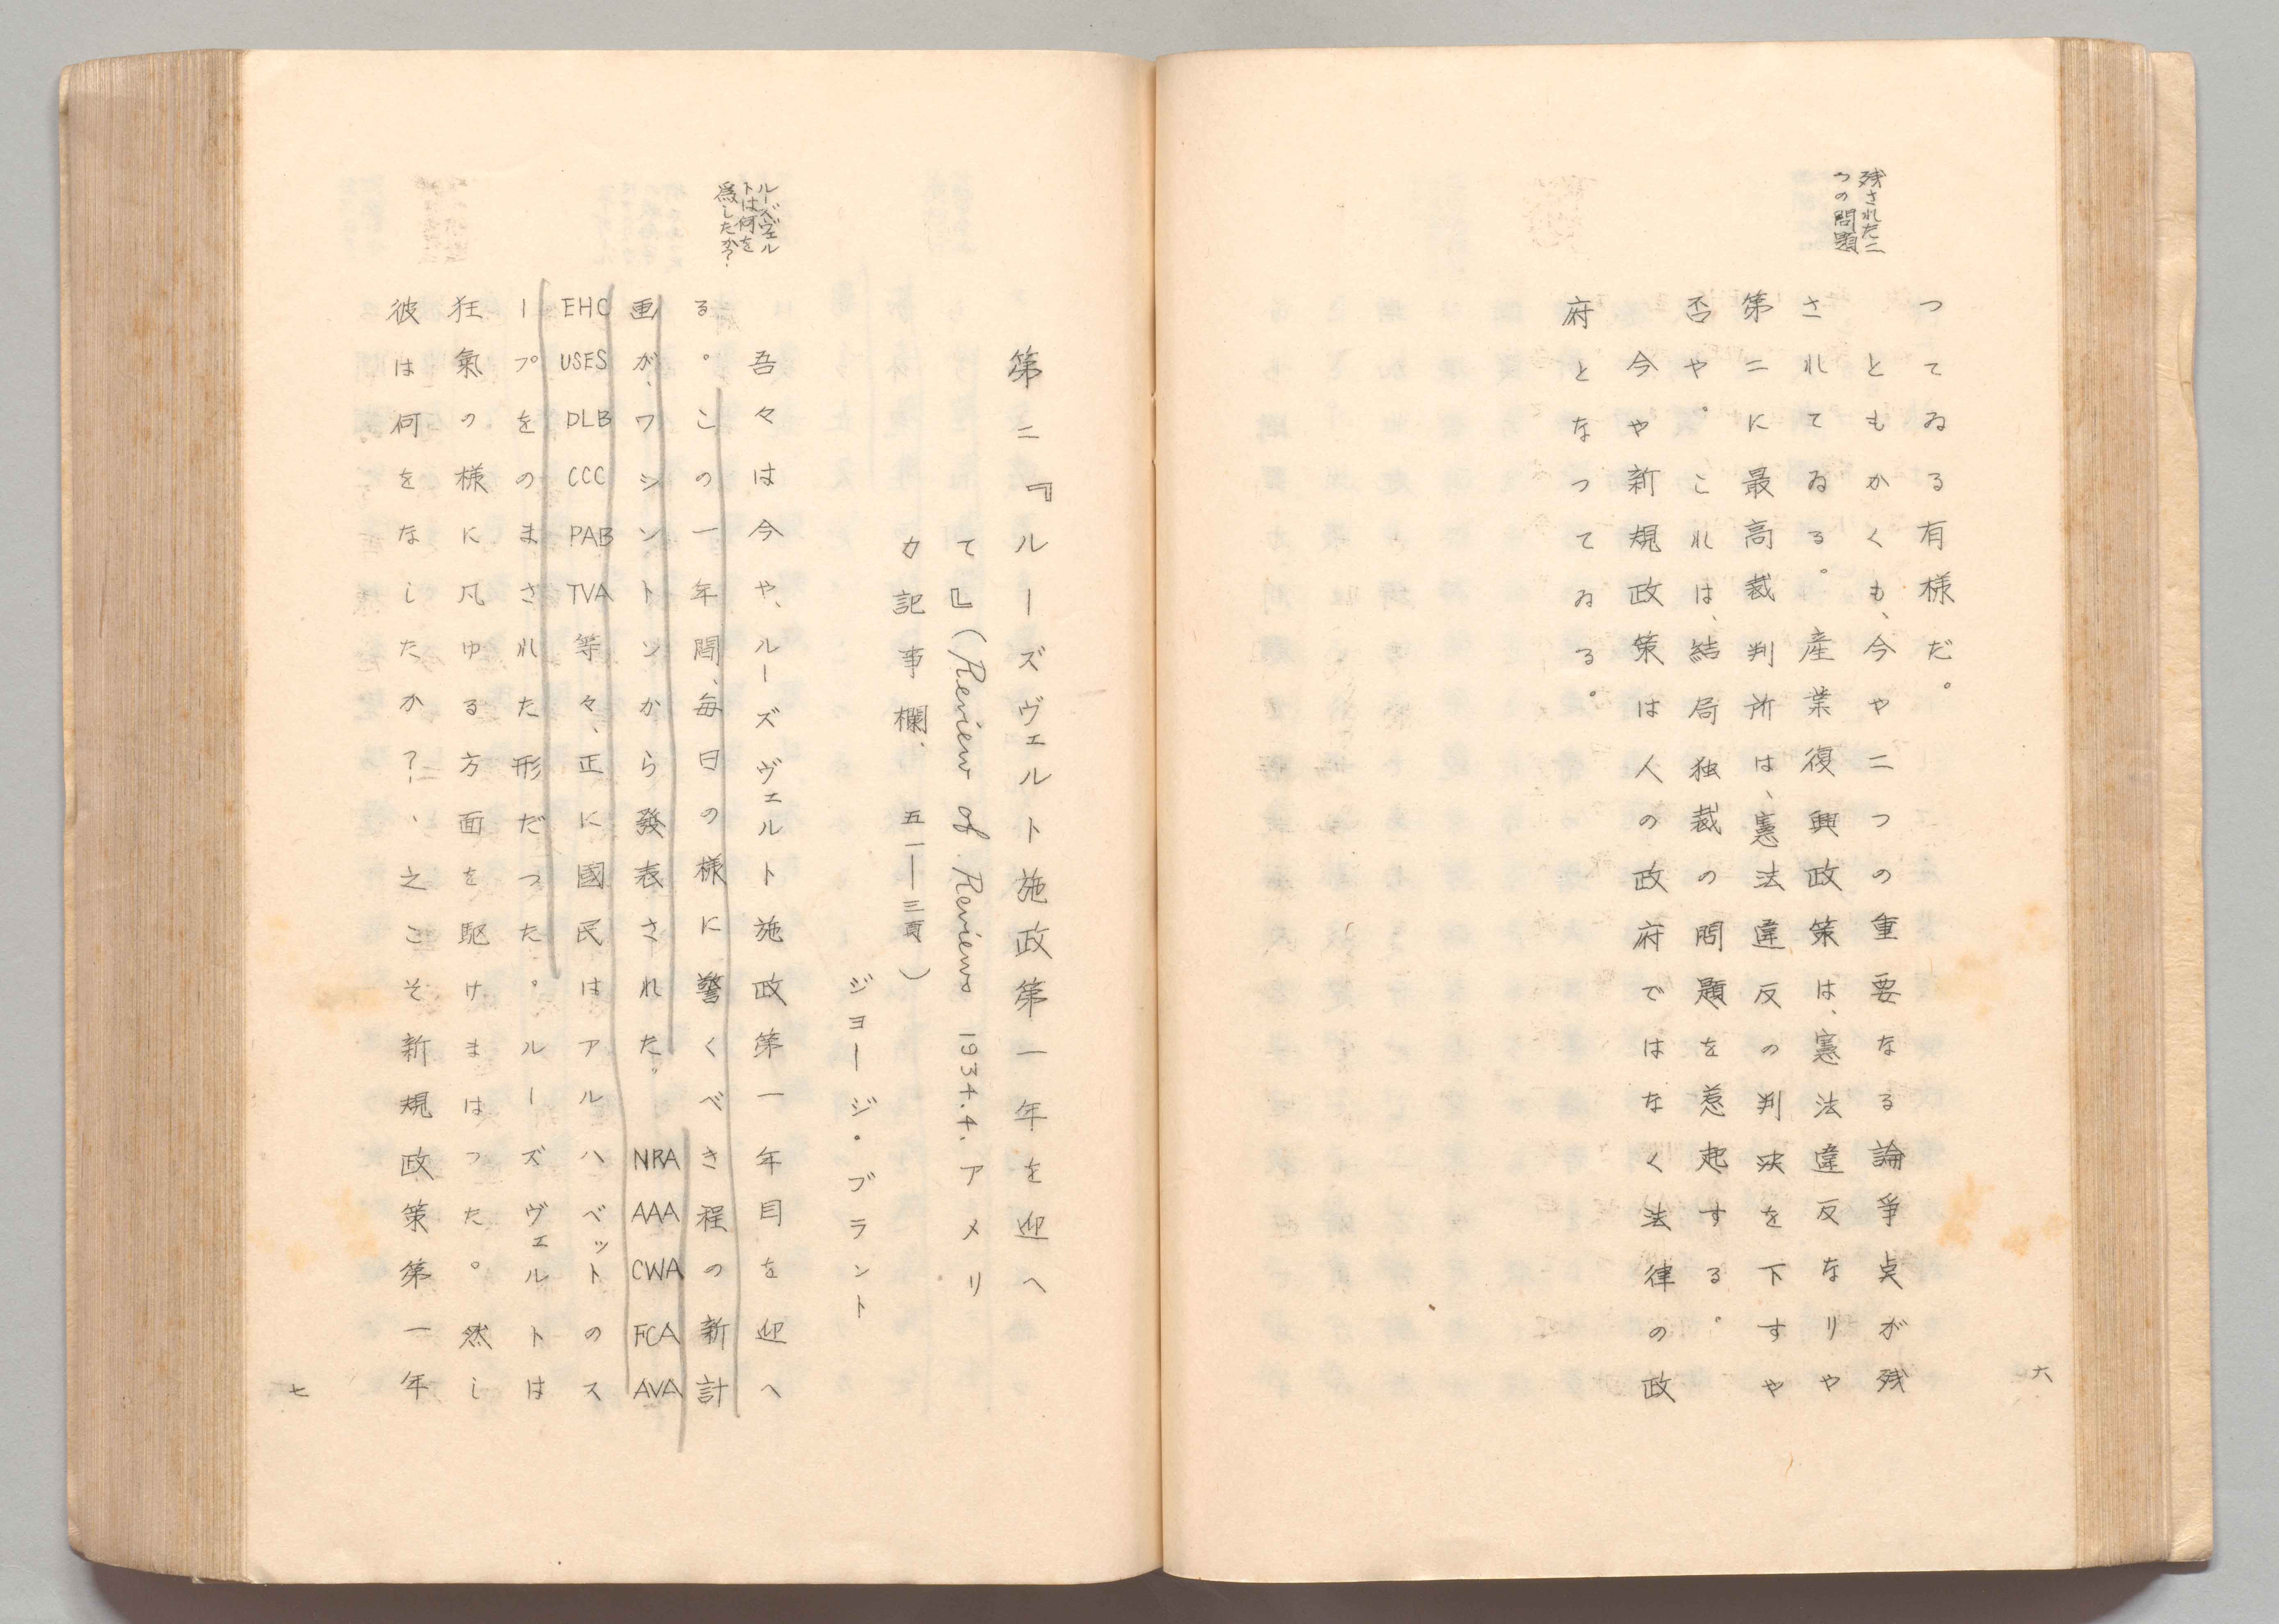 残された二
つの問題
つてゐる有様だ。
ともかくも、今や二つの重要なる論爭点が残
されてゐる。産業復興政策は、憲法違反なりや
第二に最高裁判所は、憲法違反の判決を下すや
否や。これは、結局独裁の問題を惹起する。
今や新規政策は人の政府ではなく法律の政
府となつてゐる。
六
第二『ルーズヴェルト施政第一年を迎へ
て』(Review of Reviews 1934.4. アメリ
カ記事欄、五一―三頁)
ジョージ・ブラント
ルーズヴェル
トは何を
為したか?
吾々は今や、ルーズヴェルト施政第一年目を迎へ
る。この一年間、毎日の様に驚くべき程の新計
画が、ワシントンから発表された。NRA AAA CWA FCA AVA
EHC USES DLB CCC PAB TVA 等々、正に國民はアルハベットのス
ープをのまされた形だつた。ルーズヴェルトは
狂氣の様に凡ゆる方面を駆けまはつた。然し
彼は何をなしたか?、之こそ新規政策第一年
七